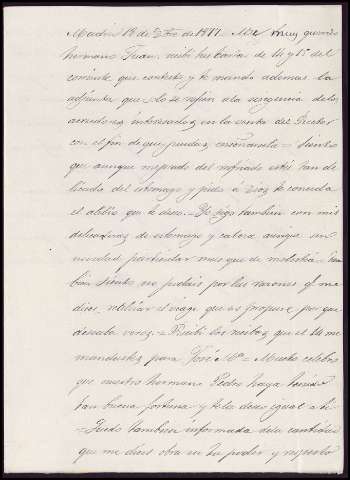 Madrid 18 de Stbre de 1877. Mi muy querido
hermano Juan: recibí tus cartas de 14 y 15 del
corriente que contesto, y te mando ademas la
adjunta que se refiere a la
acreedores interesados en la venta del
con el fin de que puedas enseñarsela = Siento
que aunque mejorado del resfriado estés tan de
licado del estomago y pido a Dios te conceda
el alivio que te deseo. = Yo sigo tambien con mis
delicadezas de estomago y cabeza aunque sin
novedad particular mas que de molestia. Tam
bien siento no podais por las razones q.e me
dices, utilizar el viage que os propuse por que
deseaba veros. = Recibí los recibos que el 14 me
mandastes para José M.a = Mucho celebro
que nuestro hermano Pedro haya tenido
tan buena fortuna y te la deseo igual a ti.
= Quedo tambien informada de la cantidad
que me dices obra en tu poder y respecto